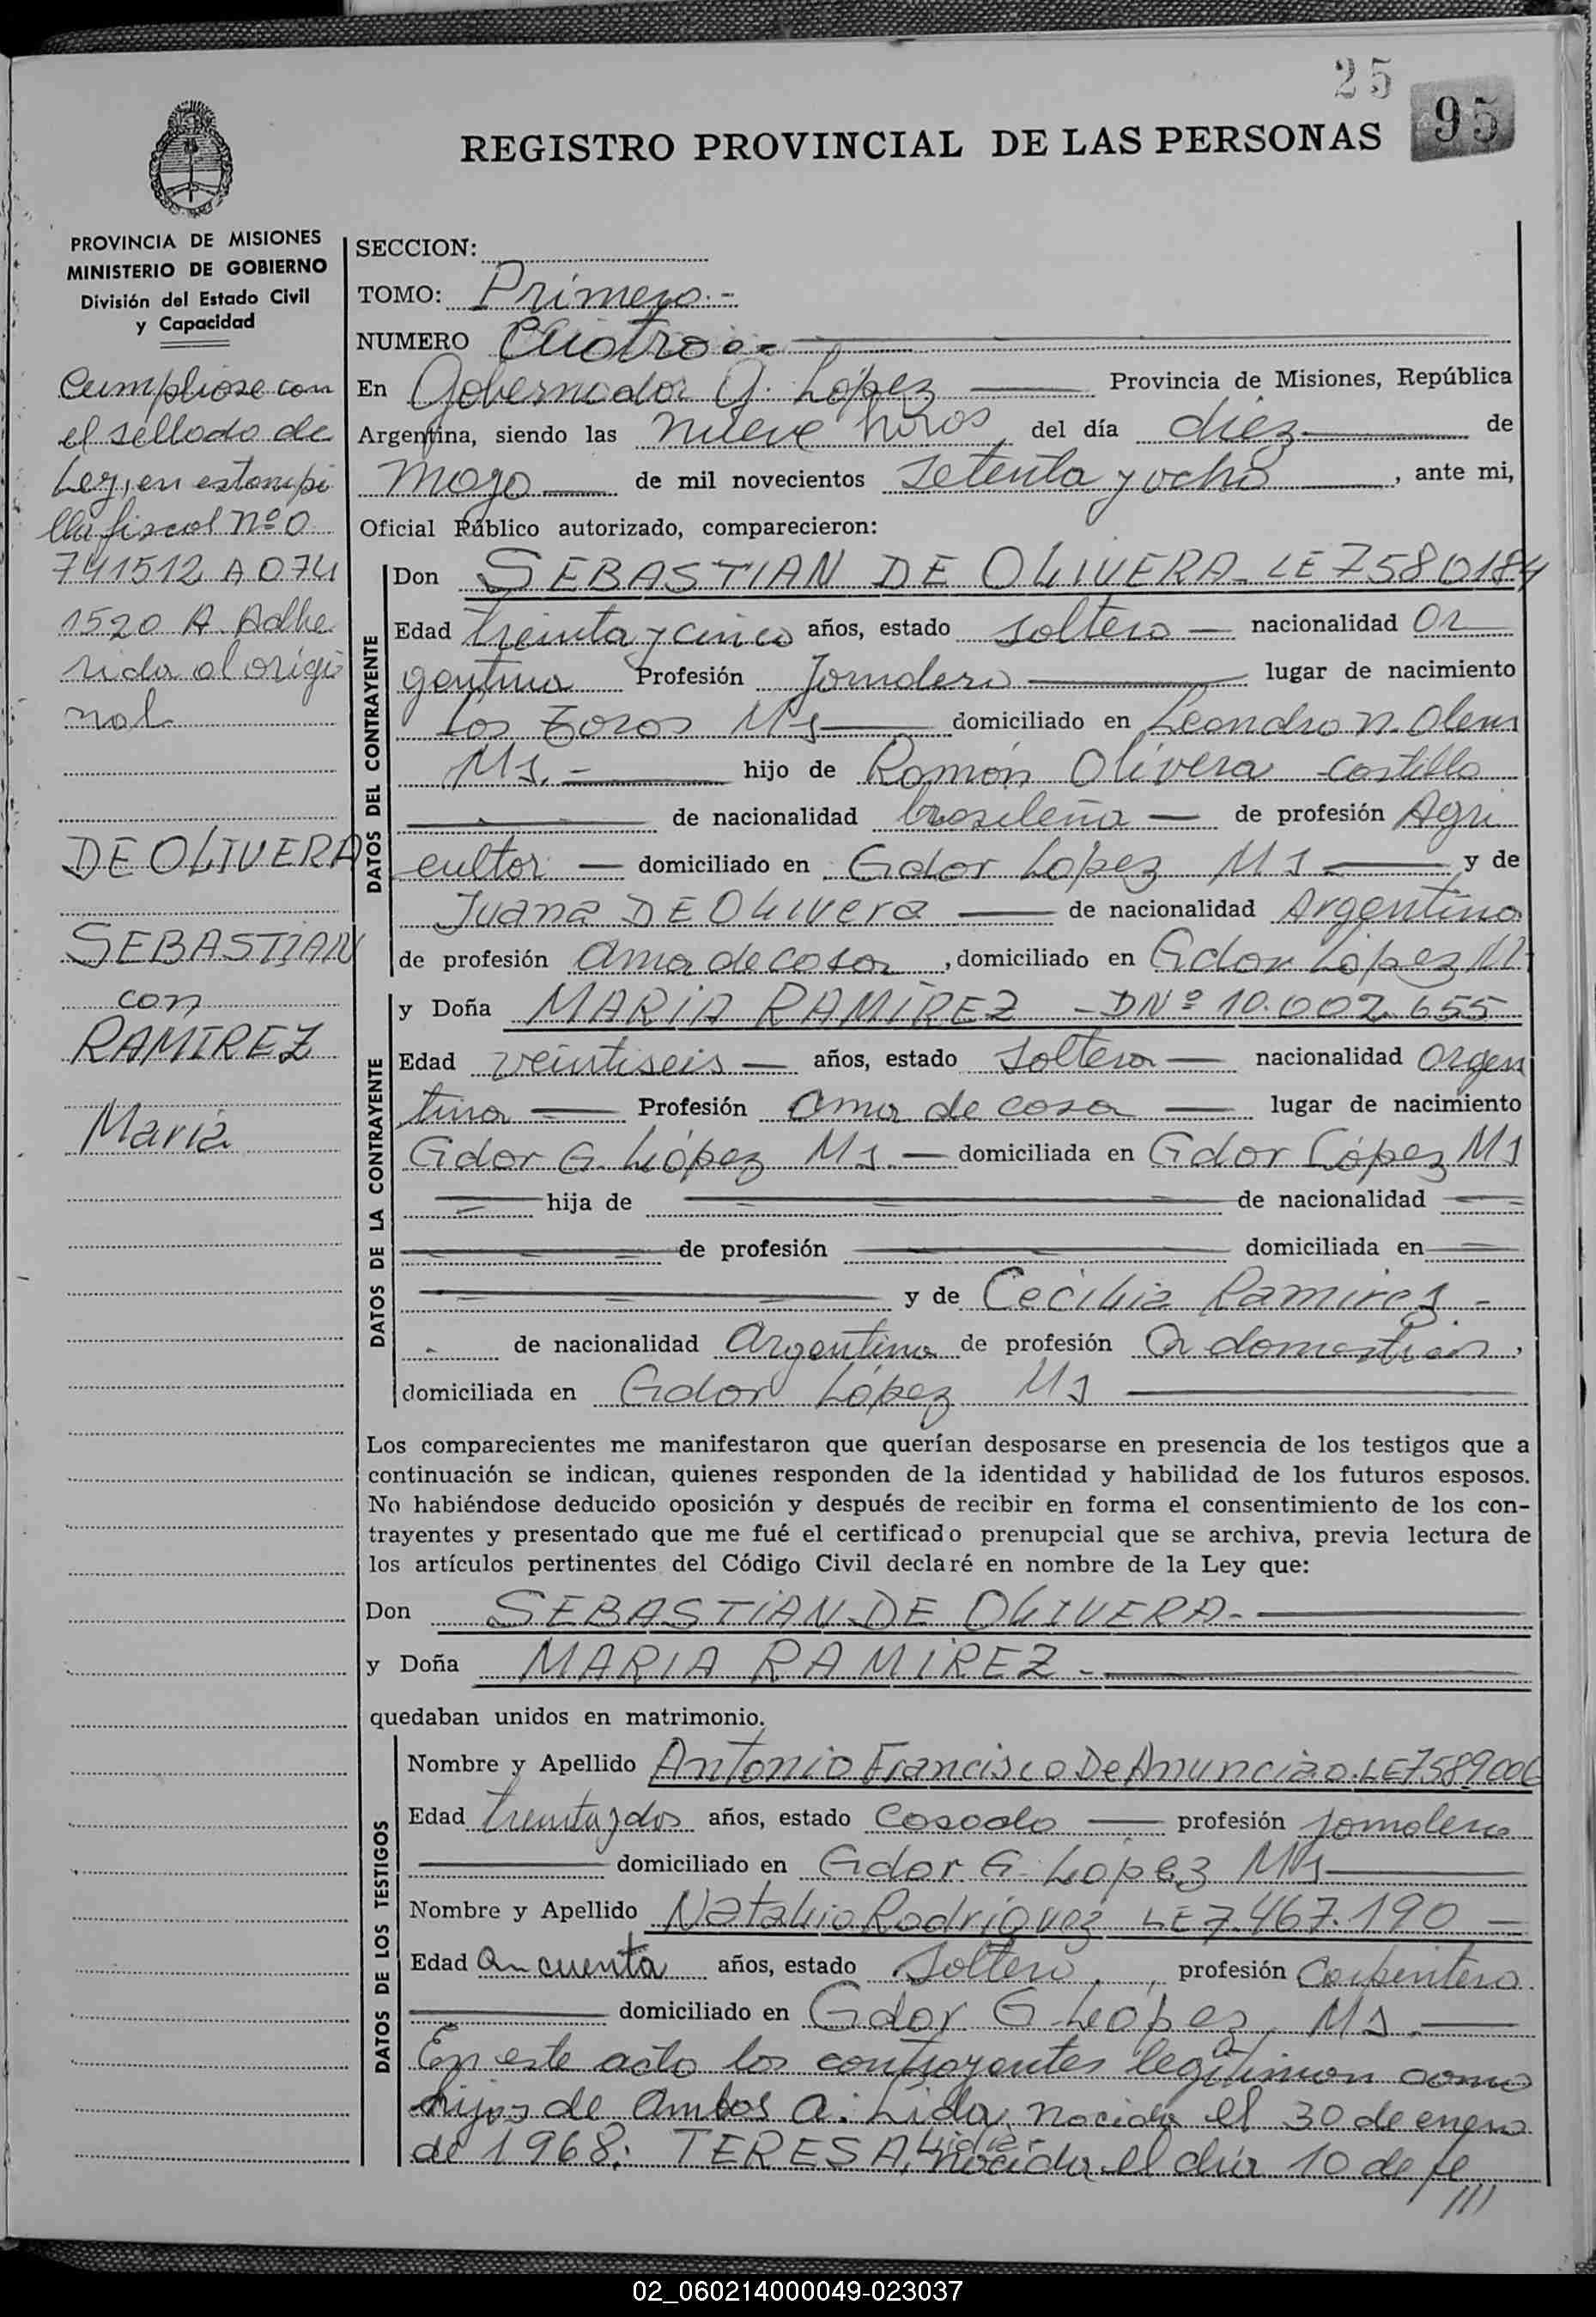 25
95
REGISTRO PROVINCIAL DE LAS PERSONAS
PROVINCIA DE MISIONES
MINISTERIO DE GOBIERNO
División del Estado Civil
y Capacidad
Cumpliose con
el sellado de
Ley, en estampi
lla fiscal Nº 0
741512 A 074
1520 A. Adhe
rida al origi
nal
DE OLIVERA
SEBASTIAN
con
RAMIREZ
Maria
SECCION:
TOMO: Primero.-
NUMERO Cuatro
En Gobernador G. López Provincia de Misiones, República
Argentina, siendo las nueve horas del día diez de
mayo de mil novecientos setenta y ocho, ante mi,
Oficial Público autorizado, comparecieron:
DATOS DEL CONTRAYENTE
Don SEBASTIAN DE OLIVERA - LE 7580184
Edad treinta y cinco años, estado soltero nacionalidad ar
gentina Profesión Jornalero lugar de nacimiento
Los Ms domiciliado en Leandro N. Alem
Ms. hijo de Ramón Olivera Castillo
de nacionalidad brasileña de profesión Agri
cultor domiciliado en Gdor López Ms y de
Juana DE Olivera de nacionalidad Argentina
de profesión ama de casa, domiciliado en Gdor López Ms
DATOS DE LA CONTRAYENTE
y Doña MARIA RAMIREZ - DNº 10.002.655
Edad veintiseis años, estado soltera nacionalidad argen
tina Profesión ama de casa lugar de nacimiento
Gdor G. López Ms. domiciliada en Gdor López Ms
hija de de nacionalidad
de profesión domiciliada en
y de Cecilia Ramirez.-
de nacionalidad Argentina de profesión Q domesticos,
domiciliada en Gdor López Ms
Los comparecientes me manifestaron que querían desposarse en presencia de los testigos que a
continuación se indican, quienes responden de la identidad y habilidad de los futuros esposos.
No habiéndose deducido oposición y después de recibir en forma el consentimiento de los con-
trayentes y presentado que me fué el certificado prenupcial que se archiva, previa lectura de
los artículos pertinentes del Código Civil declaré en nombre de la Ley que:
Don SEBASTIAN DE OLIVERA-
y Doña MARIA RAMIREZ-
quedaban unidos en matrimonio.
DATOS DE LOS TESTIGOS
Nombre y Apellido Antonio Francisco De Anunciao. LE 7589006
Edad treinta y dos años, estado casado profesión jornalero
domiciliado en Gdor. G. López Ms
Nombre y Apellido Natalio Rodriguez LE 7.467.190
Edad cincuenta años, estado soltero, profesión Carpintero
domiciliado en Gdor G López, Ms.
En este acto los contrayentes legitiman como
hijos de ambos a: Lida, nacida el 30 de enero
de 1968; TERESA, nacida el día 10 de fe
///
02_060214000049-023037